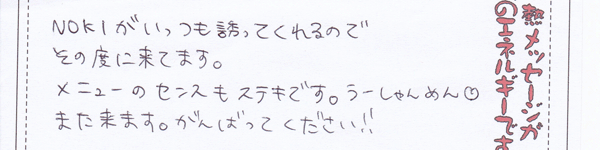 NOKIがいつも誘ってくれるので
その度に来てます。
メニューのセンスもステキです。うーしゃんめん
また来ます。がんばってください!!
熱メッセージが
のエネルギーです